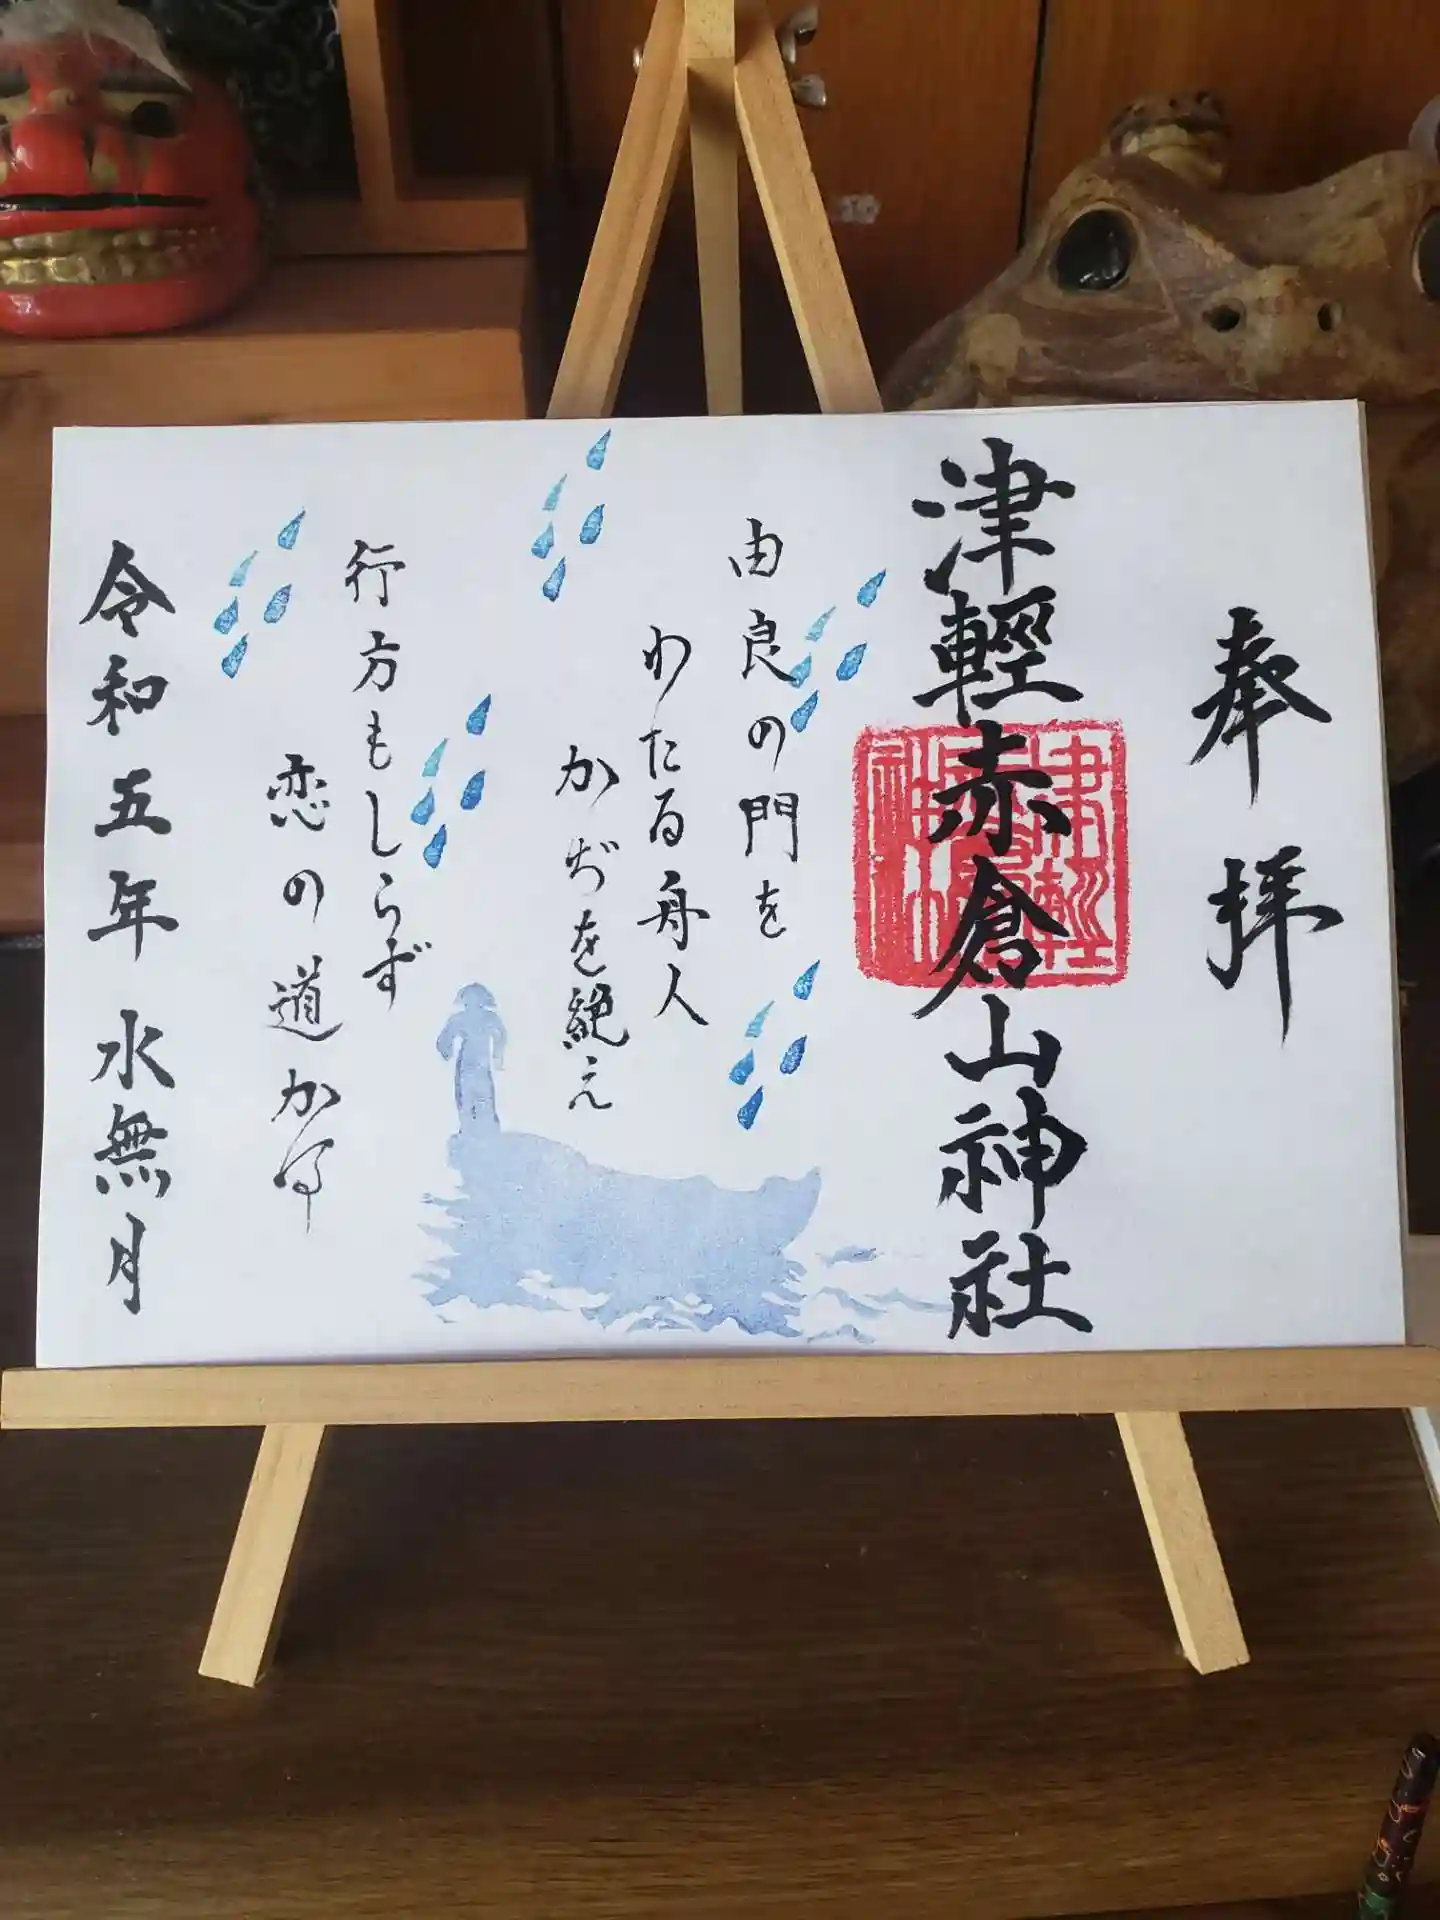 奉拝
津輕赤倉山神社
由良の門を
わたる舟人
かぢを絶え
行方もしらず
恋の道かな
令和五年水無月